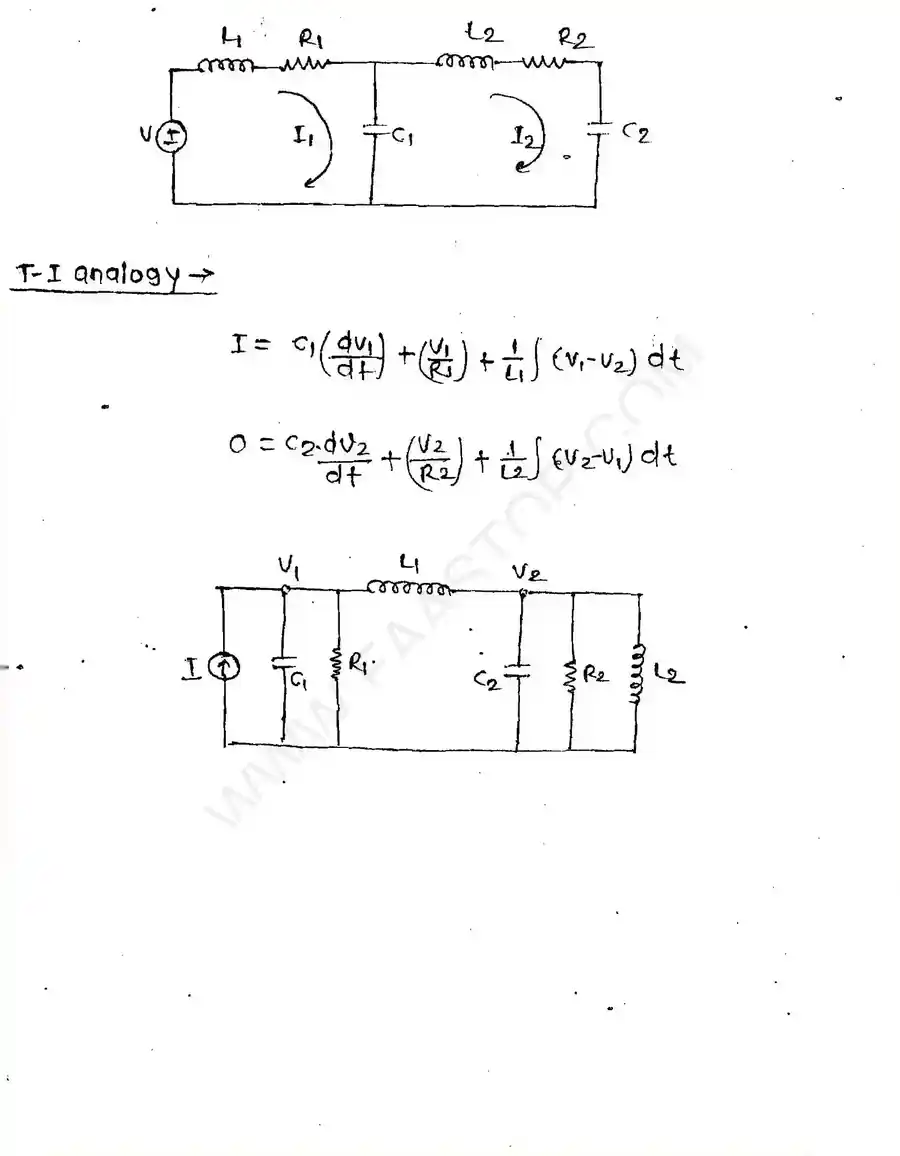 L1 R1 L2 R2
V I I1 C1 I2 C2
T-I analogy →
I = C1 (dv1/dt) + (V1/R1) + 1/L1 ∫ (v1-v2) dt
0 = C2.dv2/dt + (V2/R2) + 1/L2 ∫ (v2-v1) dt
V1 L1 V2
I C1 R1. C2 R2 L2